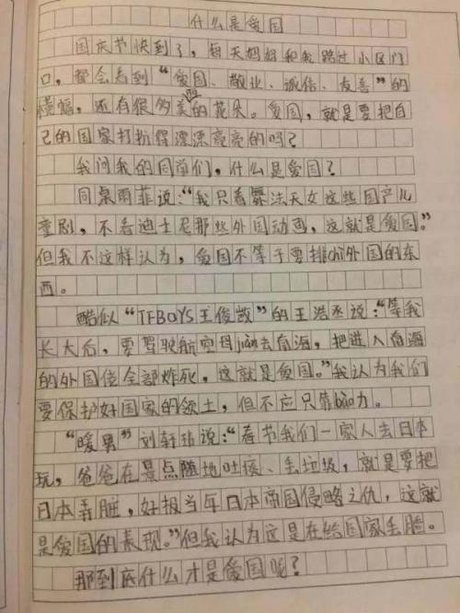 什么是爱国
国庆节快到了，每天妈妈和我路过小区门
口，都会看到“爱国、敬业、诚信、友善”的
横幅，还有很多美丽的花朵。爱国，就是要把自
己的国家打扮得漂漂亮亮的吗？
我问我的同学们，什么是爱国？
同桌雨菲说：“我只看舞法天女这些国产儿
童剧，不看迪士尼那些外国动画，这就是爱国。”
但我不这样认为，爱国不等于要排chì外国的东
西。
酷似“TFBOYS王俊凯”的王浩丞说：“等我
长大后，要驾驶航空母jiàn去南海，把进入南海
的外国佬全部炸死，这就是爱国。”我认为我们
要保护好国家的领土，但不应只靠bào力。
“暖男”刘轩珀说：“春节我们一家人去日本
玩，爸爸在景点随地吐痰、丢垃圾，就是要把
日本弄脏，好报当年日本帝国侵略之仇，这就
是爱国的表现。”但我认为这是在给国家丢脸。
那到底什么才是爱国呢？